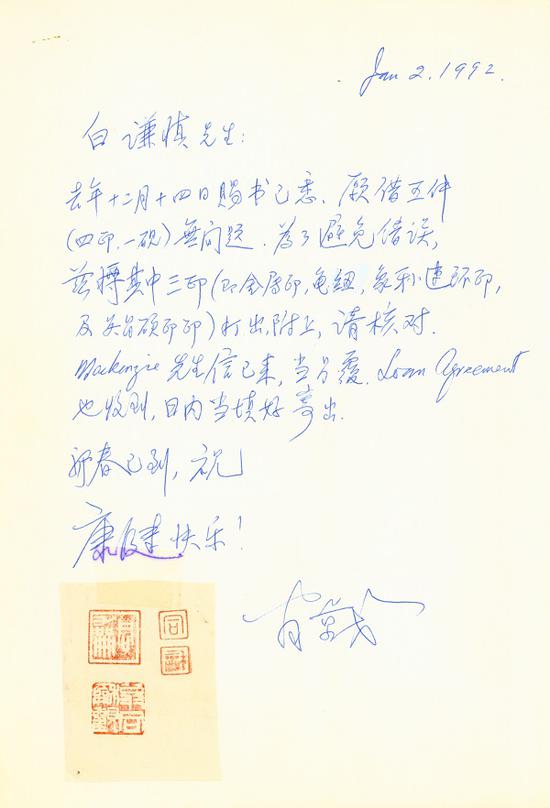 Jan 2. 1992.
白谦慎先生:
去年十二月十四日赐书已悉、愿借五件
(四印.一砚)無问题. 为了避免错误,
兹择其中三印(即金属印,龟纽,象牙小连环印,
及吴昌硕印印)打出,附上,请核对.
Mackenzie 先生信已来,当另覆. Loan Agreement
也收到,日内当填好寄出.
新春已到,祝
康健快乐!